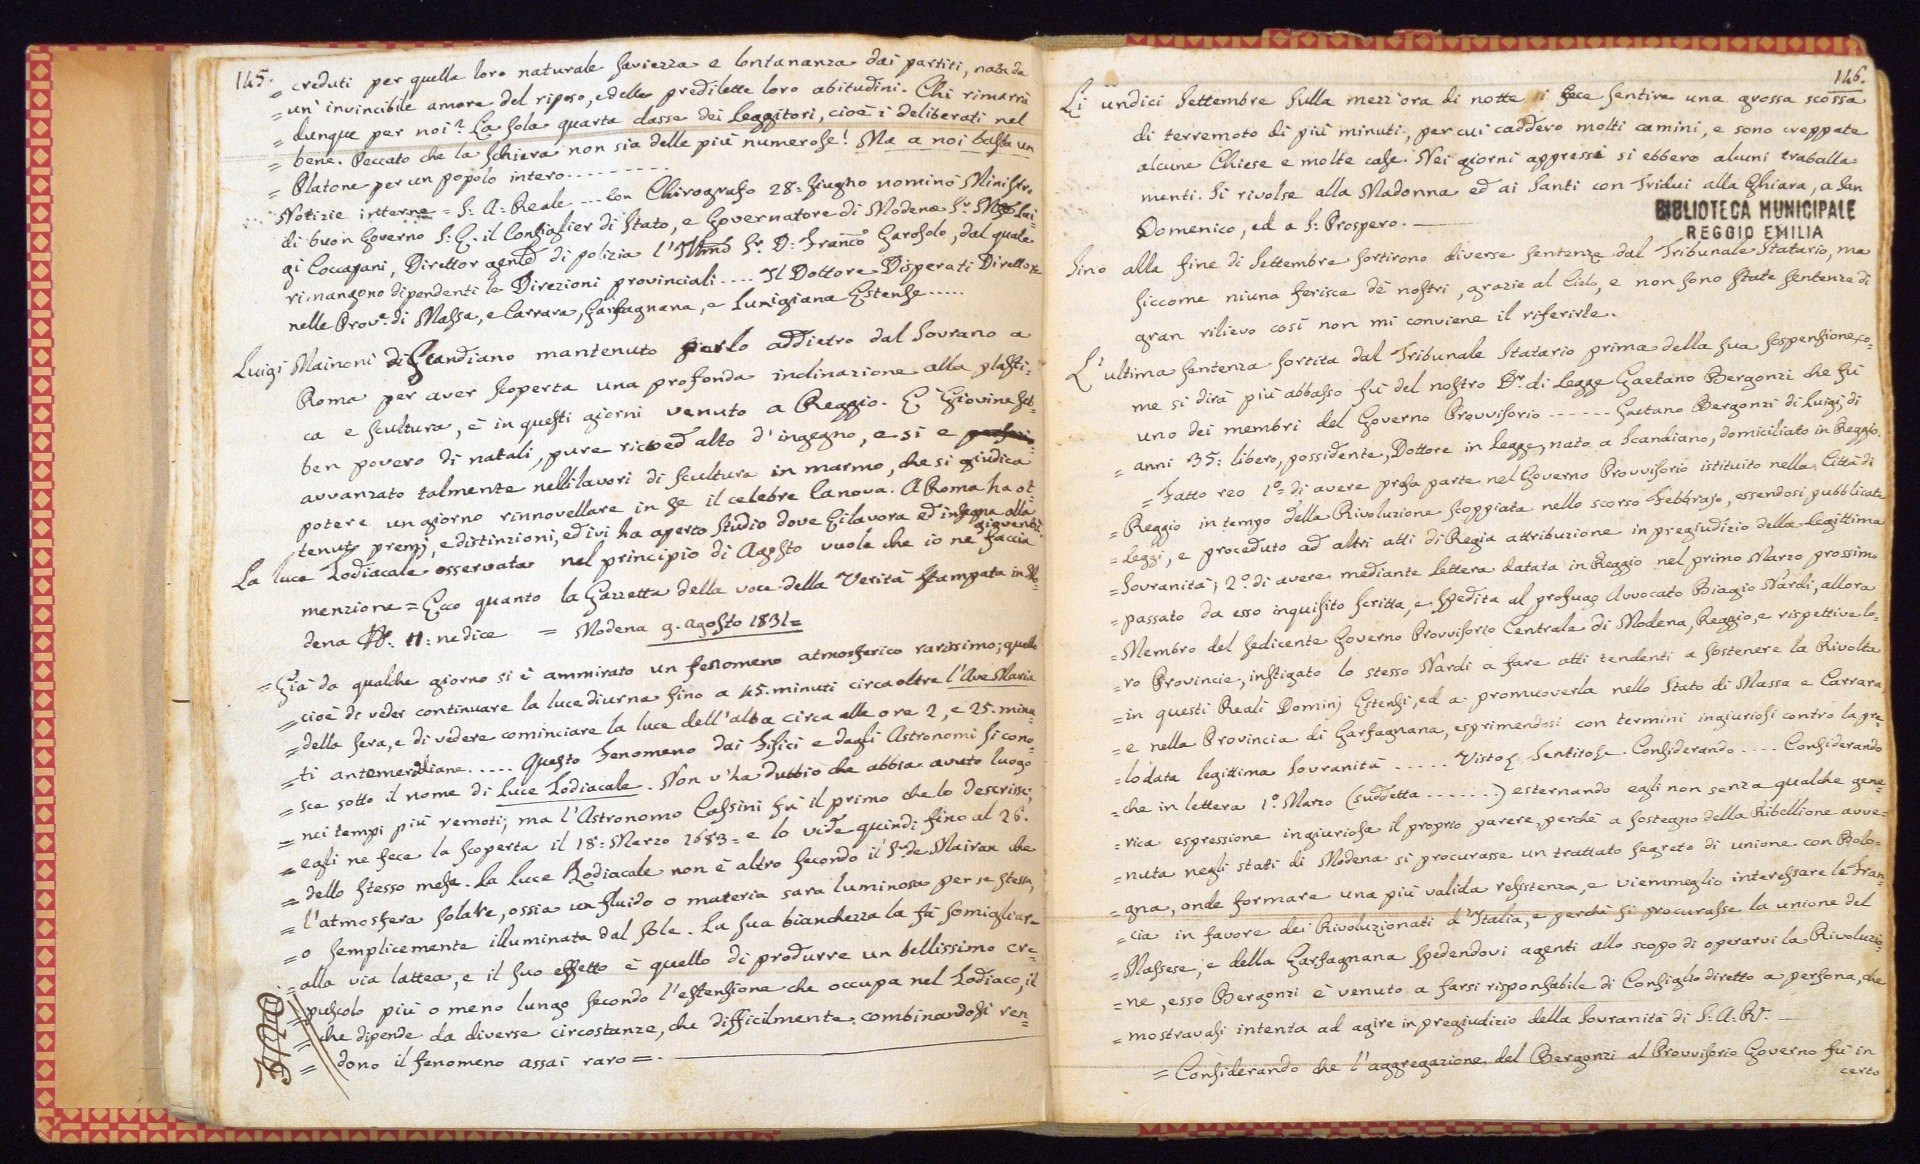 145.
= creduti per quella loro naturale saviezza e lontananza dai partiti, nata da
= un' invincibile amore del riposo, e delle predilette loro abitudini. Chi rimarrà
= dunque per noi? La sola quarta classe dei Leggitori, cioè i deliberati nel
= bene. Peccato che la schiera non sia delle più numerose! Ma a noi basta un
= Platone per un popolo intero..........
Notizie interne = S. A. Reale ... con Chirografo 28. Giugno nominò Ministro
di buon Governo S. E. il Consiglier di Stato, e Governatore di Modena Sr. Lui-
gi Coccapani, Direttor genle di polizia l'Illmo Sr. Dr. Franco Garofolo, dal quale
rimangono dipendenti le Direzioni provinciali .... Il Dottore Disperati Direttore
nelle Prove. di Massa, e Carrara, Garfagnana, e Lunigiana Estense.....
Luigi Mainoni di Scandiano mantenuto per lo addietro dal Sovrano a
Roma per aver scoperta una profonda inclinazione alla plasti-
ca e scultura, è in questi giorni venuto a Reggio. È Giovine seb-
ben povero di natali, pure ricco ed alto d'ingegno, e si e
avvanzato talmente nelli lavori di scultura in marmo, che si giudica
potere un giorno rinnovellare in se il celebre Canova. A Roma ha ot-
tenuto premj, e distinzioni, ed ivi ha aperto Studio dove Ei lavora ed insegna alla
gioventù.
La luce Zodiacale osservata nel principio di Agosto vuole che io ne faccia
menzione = Ecco quanto la Gazzetta della voce della Verità stampata in Mo-
dena N. 11: ne dice = Modena 9. agosto 1831 =
= Già da qualche giorno si è ammirato un fenomeno atmosferico rarissimo; quello
= cioè di veder continuare la luce diurna fino a 45. minuti circa oltre l'Ave Maria
= della sera, e di vedere cominciare la luce dell'alba circa alle ore 2, e 25. minu-
= ti antemeridiane..... Questo Fenomeno dai Fisici e dagli Astronomi si cono-
= sce sotto il nome di Luce Zodiacale. Non v'ha dubbio che abbia avuto luogo
= nei tempi più remoti; ma l'Astronomo Cassini fù il primo che lo descrisse;
= egli ne fece la scoperta il 18. Marzo 1683 = e lo vide quindi fino al 26.
= dello stesso mese. La luce Zodiacale non è altro secondo il Sr. de Mairan che
= l'atmosfera solare, ossia un fluido o materia rara luminosa per se stessa,
= o semplicemente illuminata dal sole. La sua bianchezza la fà somigliare
= alla via lattea, e il suo effetto è quello di produrre un bellissimo cre-
= pusculo più o meno lungo secondo l'estensione che occupa nel Zodiaco, il
= che dipende da diverse circostanze, che difficilmente combinandosi ren-
= dono il fenomeno assai raro =.
146.
Li undici Settembre sulla mezz'ora di notte si fece sentire una grossa scossa
di terremoto di più minuti, per cui caddero molti camini, e sono creppate
alcune Chiese e molte case. Nei giorni appressi si ebbero alcuni traballa-
menti. Si rivolse alla Madonna ed ai Santi con Tridui alla Ghiara, a San
Domenico, ed a S. Prospero.
BIBLIOTECA MUNICIPALE
REGGIO EMILIA
Sino alla fine di Settembre sortirono diverse sentenze dal Tribunale Statario, ma
siccome niuna ferisce de' nostri, grazie al Cielo, e non sono state sentenze di
gran rilievo così non mi conviene il riferirle.
L'ultima sentenza sortita dal Tribunale Statario prima della sua sospensione, co-
me si dirà più abbasso fù del nostro Dr. di Legge Gaetano Bergonzi che fù
uno dei membri del Governo Provvisorio ...... Gaetano Bergonzi di Luigi, di
= anni 35: libero, possidente, Dottore in Legge, nato a Scandiano, domiciliato in Reggio.
= Fatto reo 1o. di avere presa parte nel Governo Provvisorio istituito nella Città di
= Reggio in tempo della Rivoluzione scoppiata nello scorso Febbrajo, essendosi pubblicate
= leggi, e proceduto ad altri atti di Regia attribuzione in pregiudizio della legittima
= Sovranità; 2o. di avere mediante lettera datata in Reggio nel primo Marzo prossimo
= passato da esso inquisito scritta, e spedita al profugo Avvocato Biagio Nardi, allora
= Membro del sedicente Governo Provvisorio Centrale di Modena, Reggio, e rispettive lo-
= ro Provincie, instigato lo stesso Nardi a fare atti tendenti a sostenere la Rivolta
= in questi Reali Dominj Estensi, ed a promuoverla nello Stato di Massa e Carrara,
= e nella Provincia di Garfagnana, esprimendosi con termini ingiuriosi contro la pre-
= lodata legittima Sovranità ..... Visto Sentito Considerando .... Considerando
= che in lettera 1o. Marzo (suddetta .......) esternando egli non senza qualche gene-
= rica espressione ingiuriosa il proprio parere, perchè a sostegno della Ribellione avve-
= nuta negli stati di Modena si procurasse un trattato segreto di unione con Bolo-
= gna, onde formare una più valida resistenza, e viemmeglio interessare la Fran-
= cia in favore dei Rivoluzionati d'Italia, e perchè si procurasse la unione del
= Massese, e della Garfagnana spedendovi agenti allo scopo di operarvi la Rivoluzio-
= ne, esso Bergonzi è venuto a farsi risponsabile di Consiglio diretto a persona, che
= mostravasi intenta ad agire in pregiudizio della Sovranità di S. A. R.
= Considerando che l'aggregazione del Bergonzi al Provvisorio Governo fù in
certo